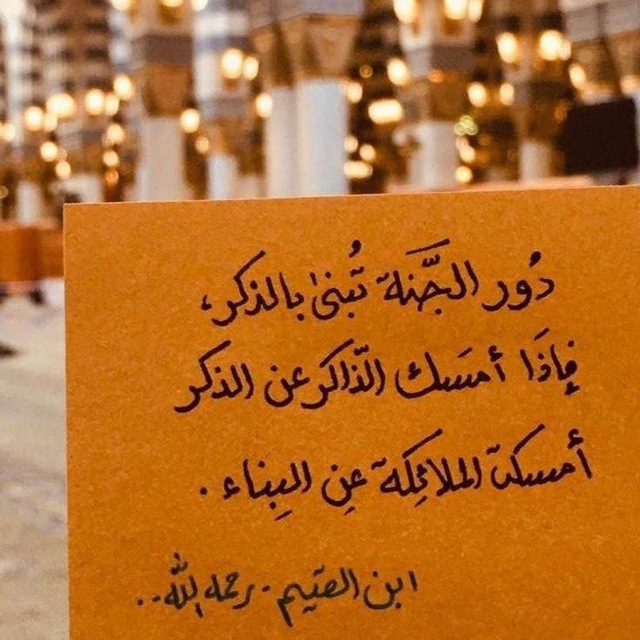 دُور الجَّنة تُبنىٰ بالذكر،
فإذَا أمسَك الذّاكر عن الذكر
أمسكت الملائِكة عِن البِناء .
ابن القيم . رحمه الله . .